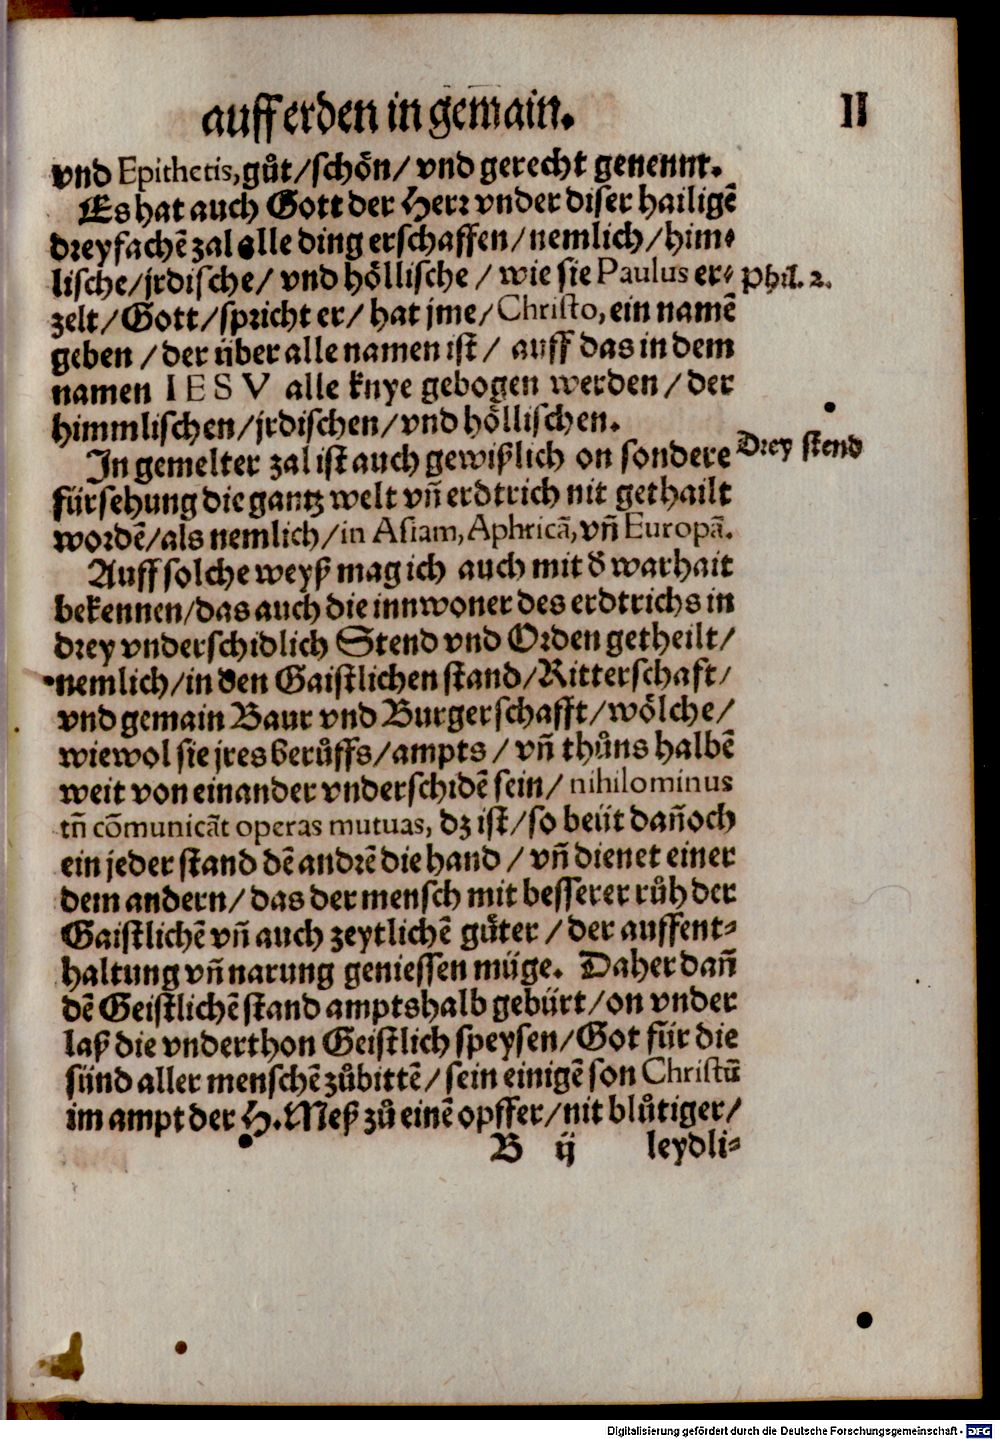 auff erden in gemain. II
vnd Epithetis, gůt/schön/ vnd gerecht genennt.
Es hat auch Gott der Herr vnder diser hailigē
dreyfachē zal alle ding erschaffen/nemlich/him⸗
lische/jrdische/ vnd höllische / wie sie Paulus er⸗ Phil. 2.
zelt/Gott/spricht er/ hat jme/Christo, ein namē
geben /der über alle namen ist/ auff das in dem
namen IESV alle knye gebogen werden/der
himmlischen/jrdischen/vnd höllischen.
In gemelter zal ist auch gewißlich on sondere Drey stend
fürsehung die gantz welt vñ erdtrich nit gethailt
wordē/als nemlich/in Asiam, Aphricā, vñ Europā.
Auff solche weyß mag ich auch mit d̄ warhait
bekennen/das auch die innwoner des erdtrichs in
drey vnderschidlich Stend vnd Orden getheilt/
nemlich/in den Gaistlichen stand/Ritterschaft/
vnd gemain Baur vnd Burgerschafft/wölche/
wiewol sie jres berůffs/ampts/ vñ thůns halbē
weit von einander vnderschidē sein/ nihilominus
tñ cōmunicāt operas mutuas, dz ist/so beüt dañoch
ein jeder stand dē andrē die hand / vñ dienet einer
dem andern/ das der mensch mit besserer růh der
Gaistlichē vñ auch zeytlichē gůter / der auffent⸗
haltung vñ narung geniessen müge. Daher dañ
dē Geistlichē stand amptshalb gebürt/on vnder
laß die vnderthon Geistlich speysen/Got für die
sünd aller menschē zůbittē/sein einigē son Christū
im ampt der H. Meß zů einē opffer/nit blůtiger/
B ij leydli⸗
Digitalisierung gefördert durch die Deutsche Forschungsgemeinschaft - DFG